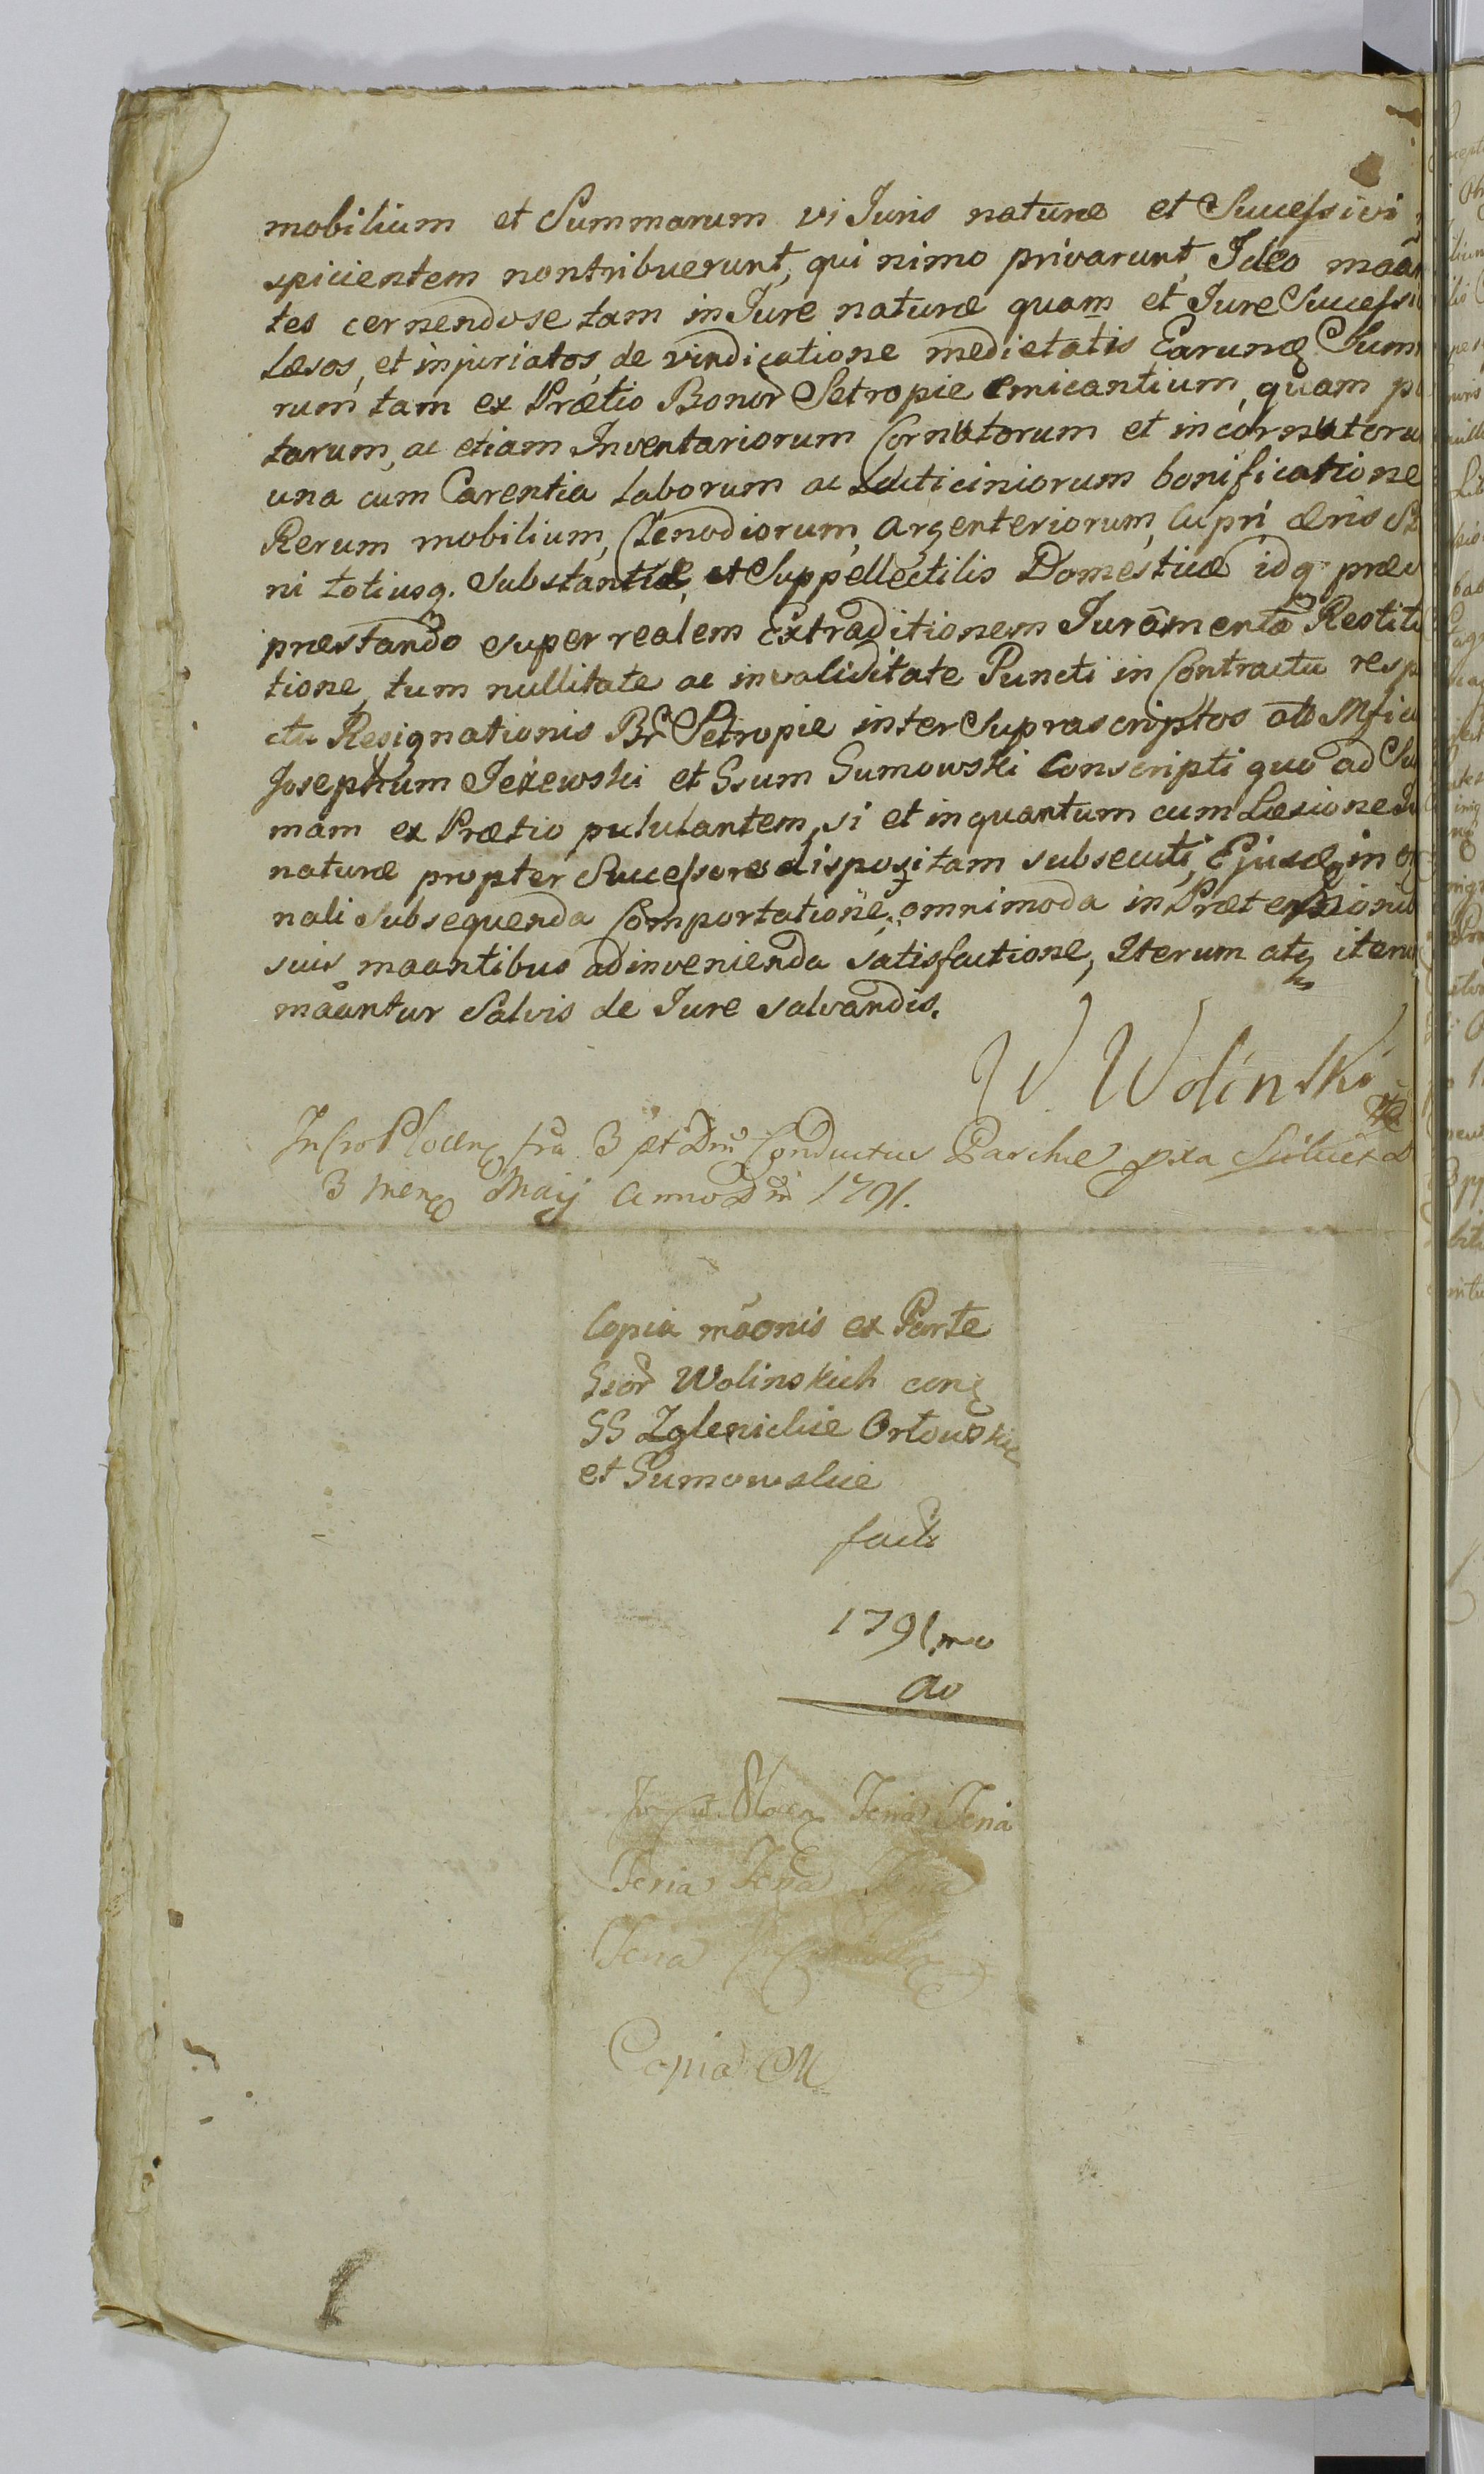 mobilium et Summarum vi Juris naturæ et Successivi
spicientem nontribuerunt, qui nimo privarunt, Ideo maãn
tes cernendose tam in Jure naturæ quam et Jure Successi
Læsos, et injuriatos, de vindicatione medietatis Earunđ Sum
rum tam ex Prætio Bonor Setropie emicantium, quam p
tarum, ac etiam Inventariorum Cornutorum et incornutoru
una cum Carentia Laborum ac Lacticiniorum bonificatione
Rerum mobilium, Clenodiorum, Argenteriorum, Cupri, æris
ni totiusq. Substantiæ, et Suppellectilis Domesticæ idq præ
præstando super realem Extraditionem Juramento Restitu
tione, tum nullitate ac invaliditate Puncti in Contractu resp
ctu Resignationis Br Setropie inter Suprascriptos olo Mficu
Josephum Jeżewski et Gsum Gumowski Conscripti quo ad Su
mam ex Prætio pululantem, si et inquantum cum Læsione
naturæ propter Successores dispositam subsecuti, Ejusđ in
nali Subsequenda Comportatione, omnimoda in Prætensioni
suis maantibus adinvenienda satisfactione, Iterum atq iteru
maantur Salvis de Jure salvandis.
W. Wolinski
In Cro Plocen fria 3 pt Dni Conductus Paschæ pxa Scilicet D
3 Mens Maij Anno Dni 1791.
Copia maonis ex Parte
Gsor Wolinskich con
GG Zglenickie Orłowskie
et Gumowskie
facta
1791mo
Ao
Feria Feria
Feria Feria Feria
Feria
Copia M